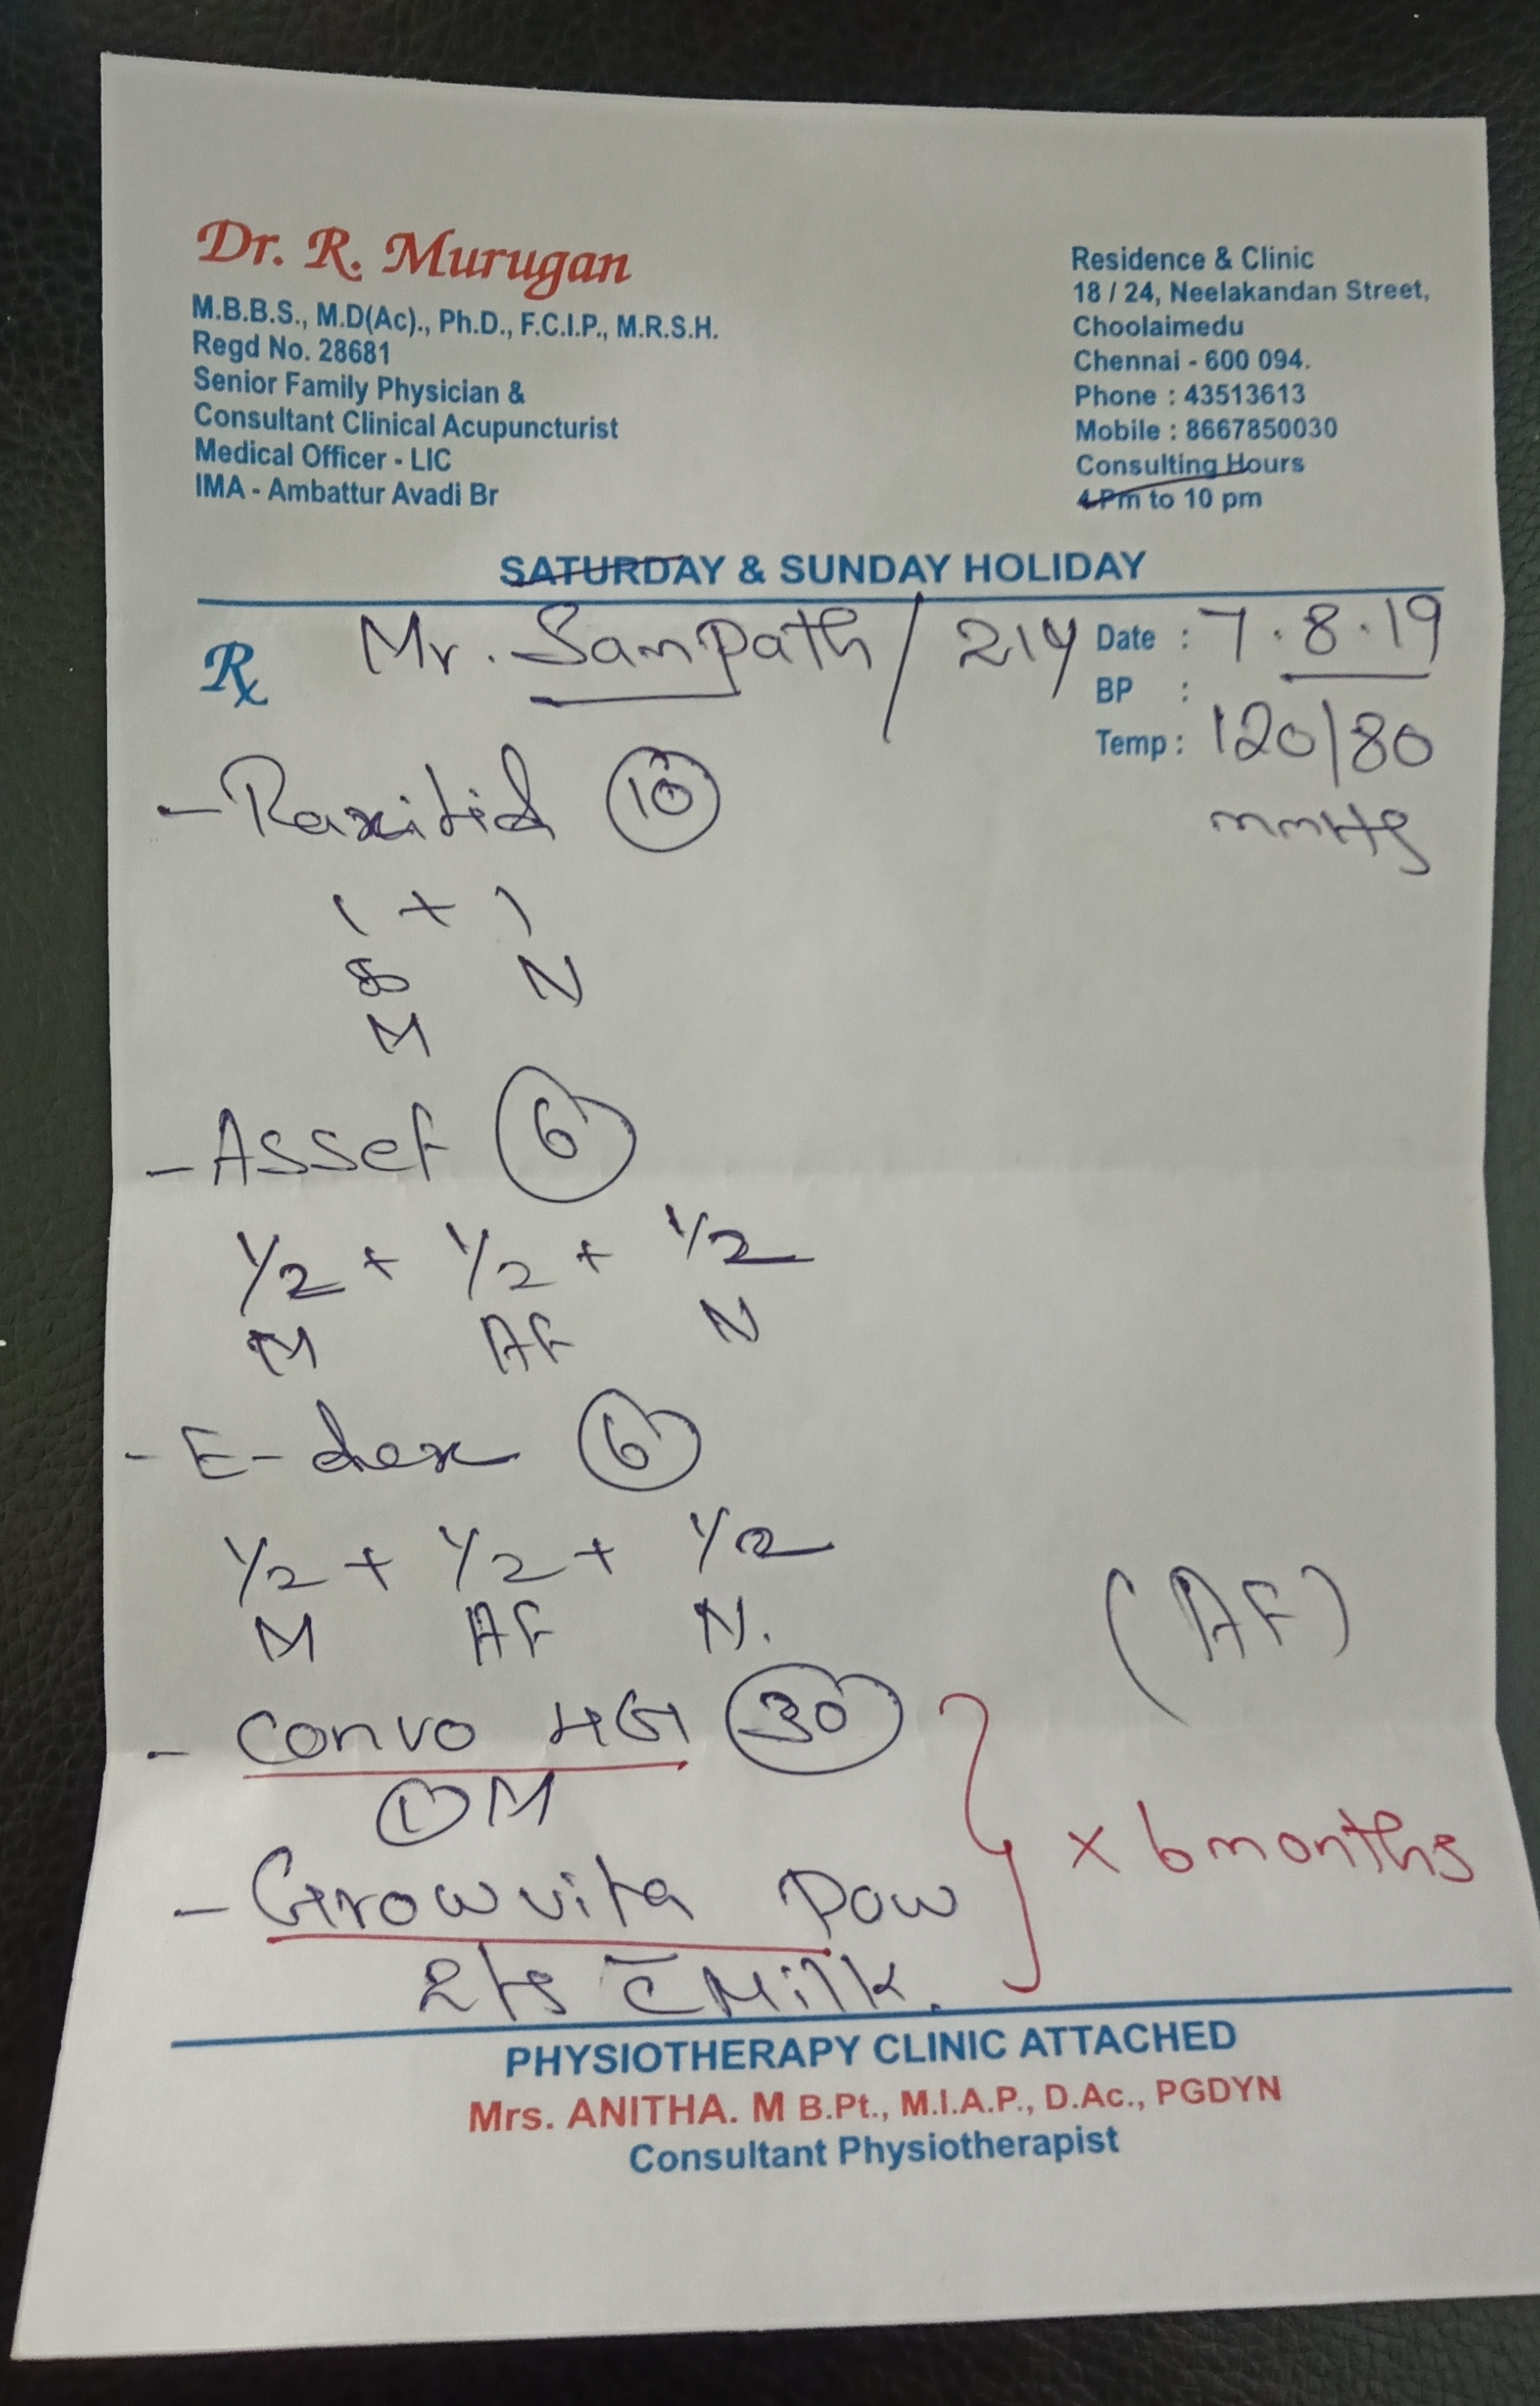 Dr. R. Murugan
M.B.B.S., M.D(Ac)., Ph.D., F.C.I.P., M.R.S.H.
Regd No. 28681
Senior Family Physician &
Consultant Clinical Acupuncturist
Medical Officer - LIC
IMA - Ambattur Avadi Br
Residence & Clinic
18 / 24, Neelakandan Street,
Choolaimedu
Chennai - 600 094.
Phone : 43513613
Mobile : 8667850030
Consulting Hours
4 Pm to 10 pm
SATURDAY & SUNDAY HOLIDAY
Rx Mr. Sampath / 21y Date : 7.8.19
BP :
Temp : 120/80
mmHg
- 10
1 + 1
N
M
- Asset 6
1/2 + 1/2 + 1/2
M AF N
- E-dex 6
1/2 + 1/2 + 1/2
M AF N.
(AF)
- Convo 4G 30
1 M
x 6 months
- Growvita Pow
2ts c̄ Milk.
PHYSIOTHERAPY CLINIC ATTACHED
Mrs. ANITHA. M B.Pt., M.I.A.P., D.Ac., PGDYN
Consultant Physiotherapist